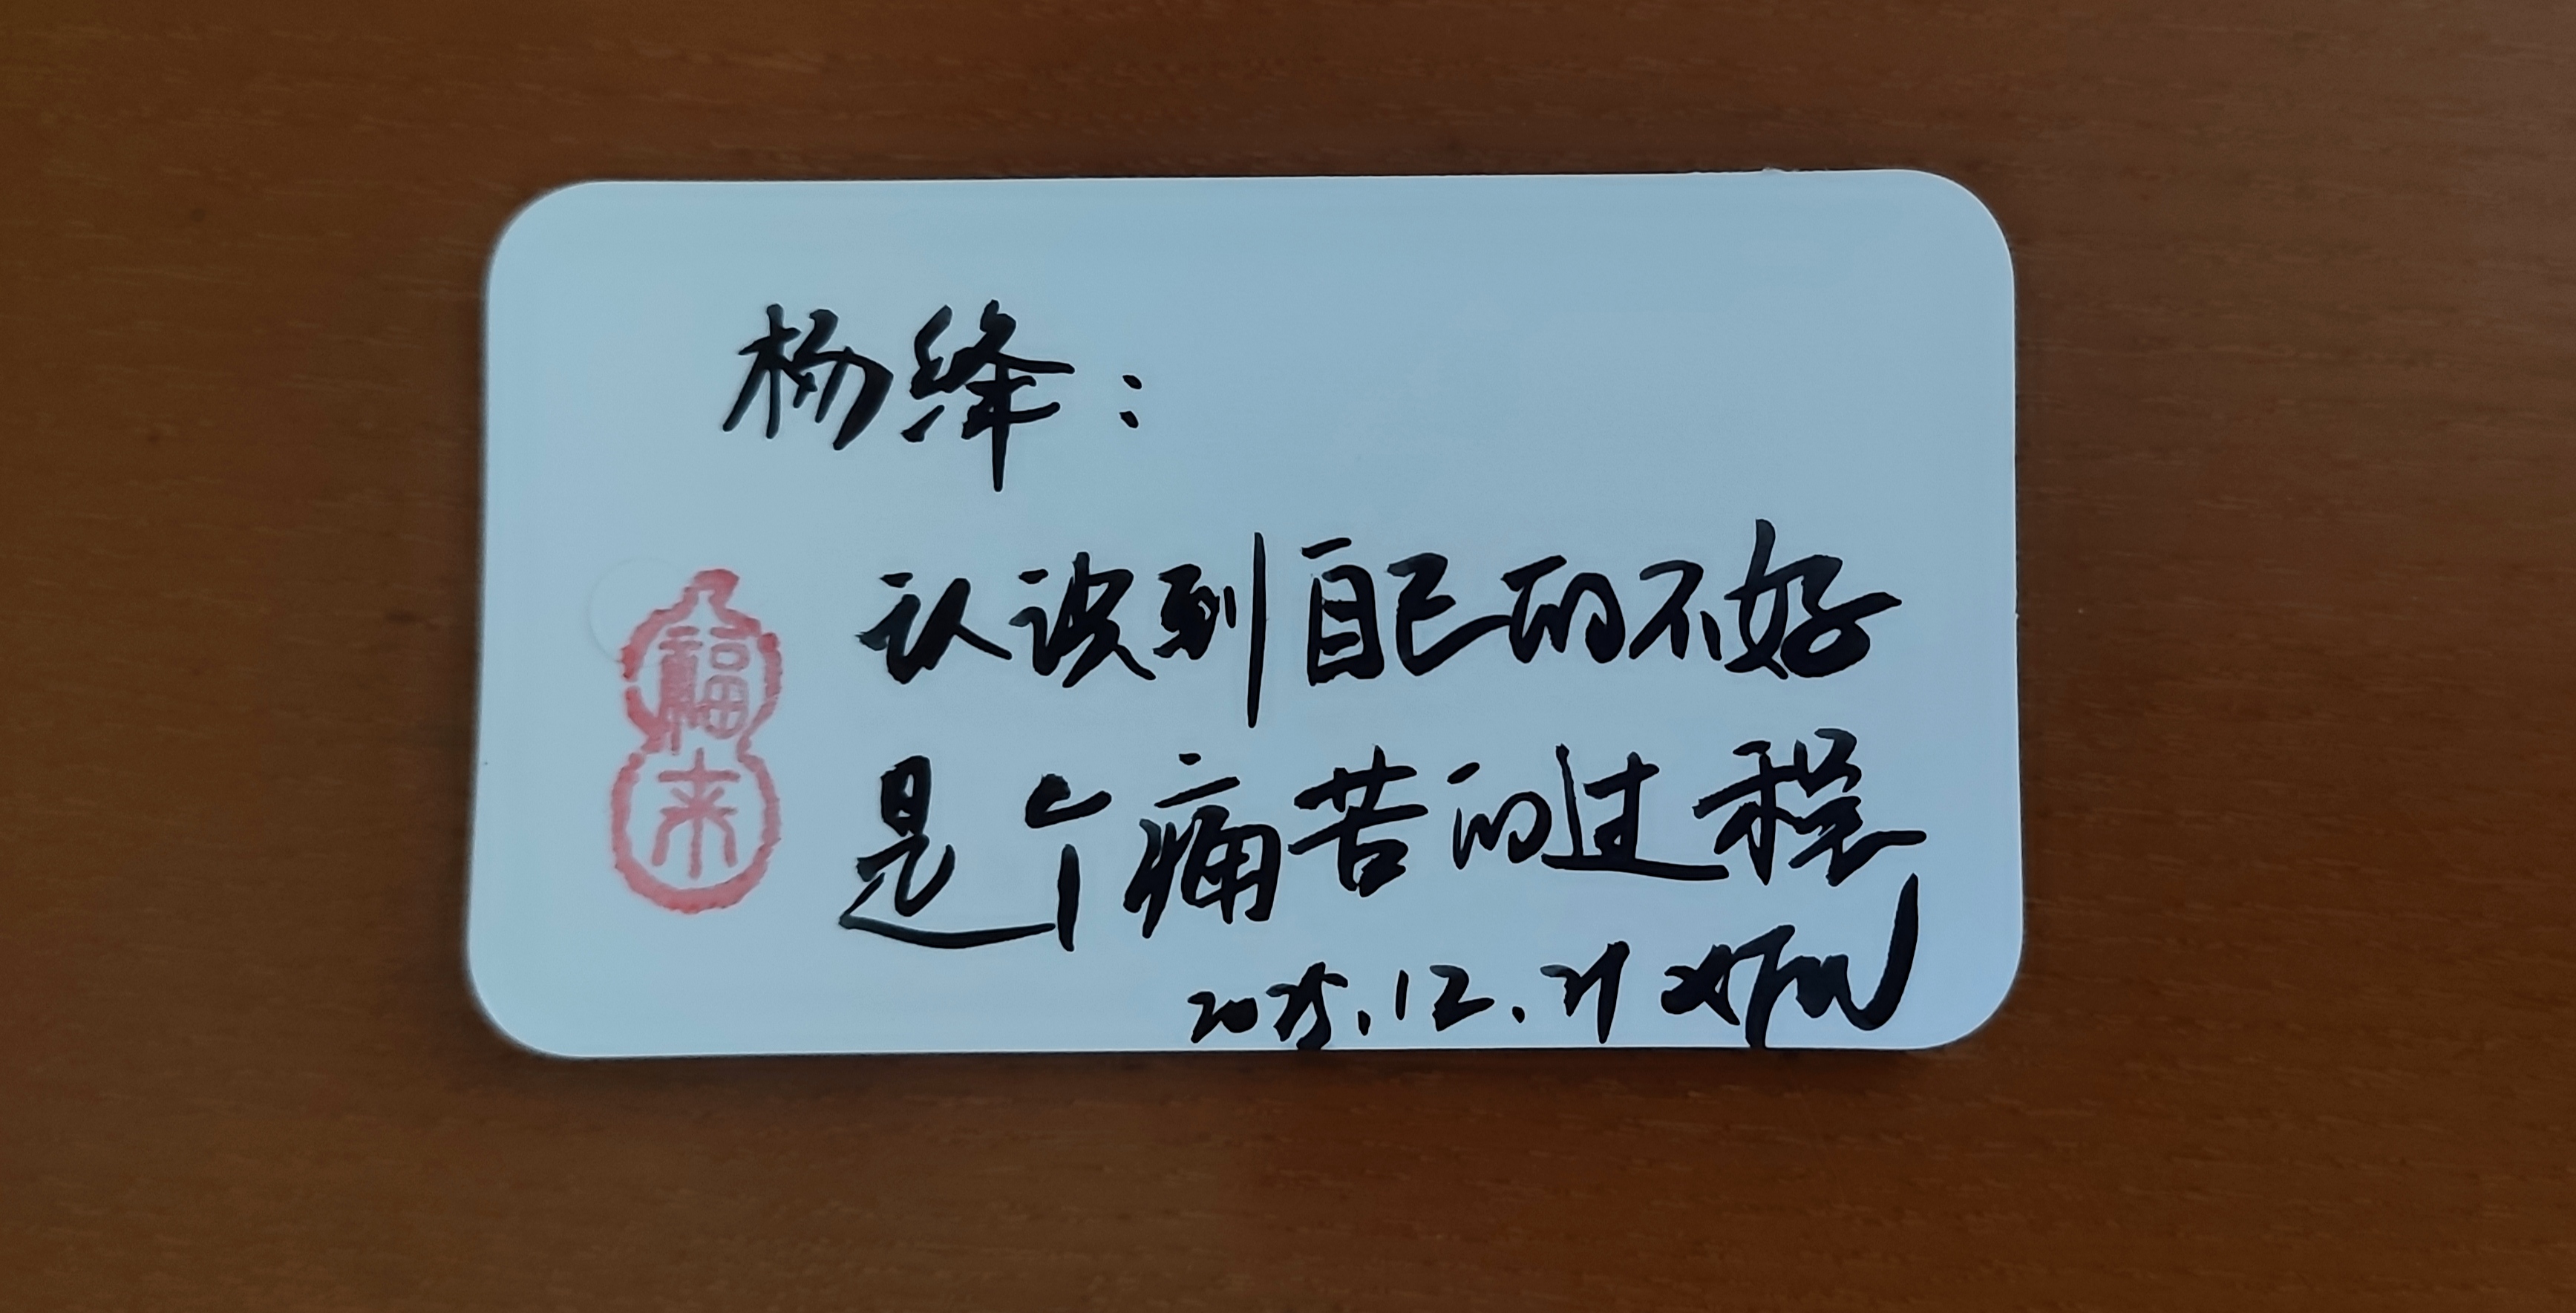 杨绛：
认识到自己的不好
是个痛苦的过程
2025.12.21
福来